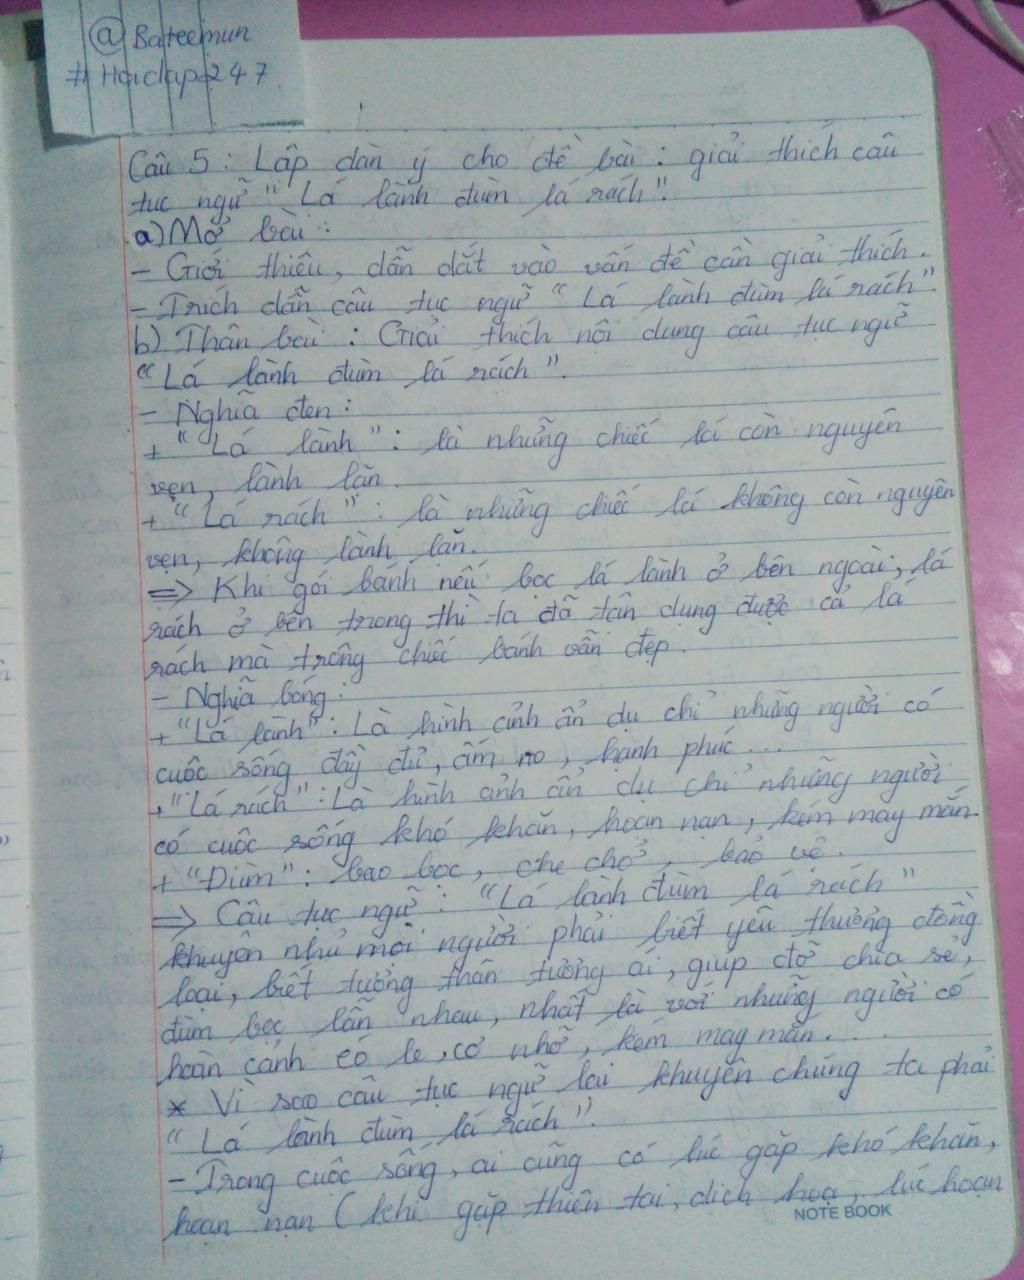 @Bateemun
#Hoidap247
Câu 5: Lập dàn ý cho đề bài: giải thích câu
tục ngữ "Lá lành đùm lá rách".
a) Mở bài:
- Giới thiệu, dẫn dắt vào vấn đề cần giải thích.
- Trích dẫn câu tục ngữ "Lá lành đùm lá rách".
b) Thân bài: Giải thích nội dung câu tục ngữ
"Lá lành đùm lá rách".
- Nghĩa đen:
+ "Lá lành": là những chiếc lá còn nguyên
vẹn, lành lặn.
+ "Lá rách": là những chiếc lá không còn nguyên
vẹn, không lành lặn.
=> Khi gói bánh nếu bọc lá lành ở bên ngoài, lá
rách ở bên trong thì ta đã tận dụng được cả lá
rách mà trông chiếc bánh vẫn đẹp.
- Nghĩa bóng:
+ "Lá lành": Là hình ảnh ẩn dụ chỉ những người có
cuộc sống đầy đủ, ấm no, hạnh phúc...
+ "Lá rách": Là hình ảnh ẩn dụ chỉ những người
có cuộc sống khó khăn, hoạn nạn, kém may mắn.
+ "Đùm": bao bọc, che chở, bảo vệ.
=> Câu tục ngữ: "Lá lành đùm lá rách"
khuyên nhủ mọi người phải biết yêu thương đồng
loại, biết tương thân tương ái, giúp đỡ chia sẻ,
đùm bọc lẫn nhau, nhất là với những người có
hoàn cảnh éo le, cơ nhỡ, kém may mắn...
* Vì sao câu tục ngữ lại khuyên chúng ta phải
"Lá lành đùm lá rách".
- Trong cuộc sống, ai cũng có lúc gặp khó khăn,
hoạn nạn (khi gặp thiên tai, dịch họa, lúc hoạn
NOTE BOOK